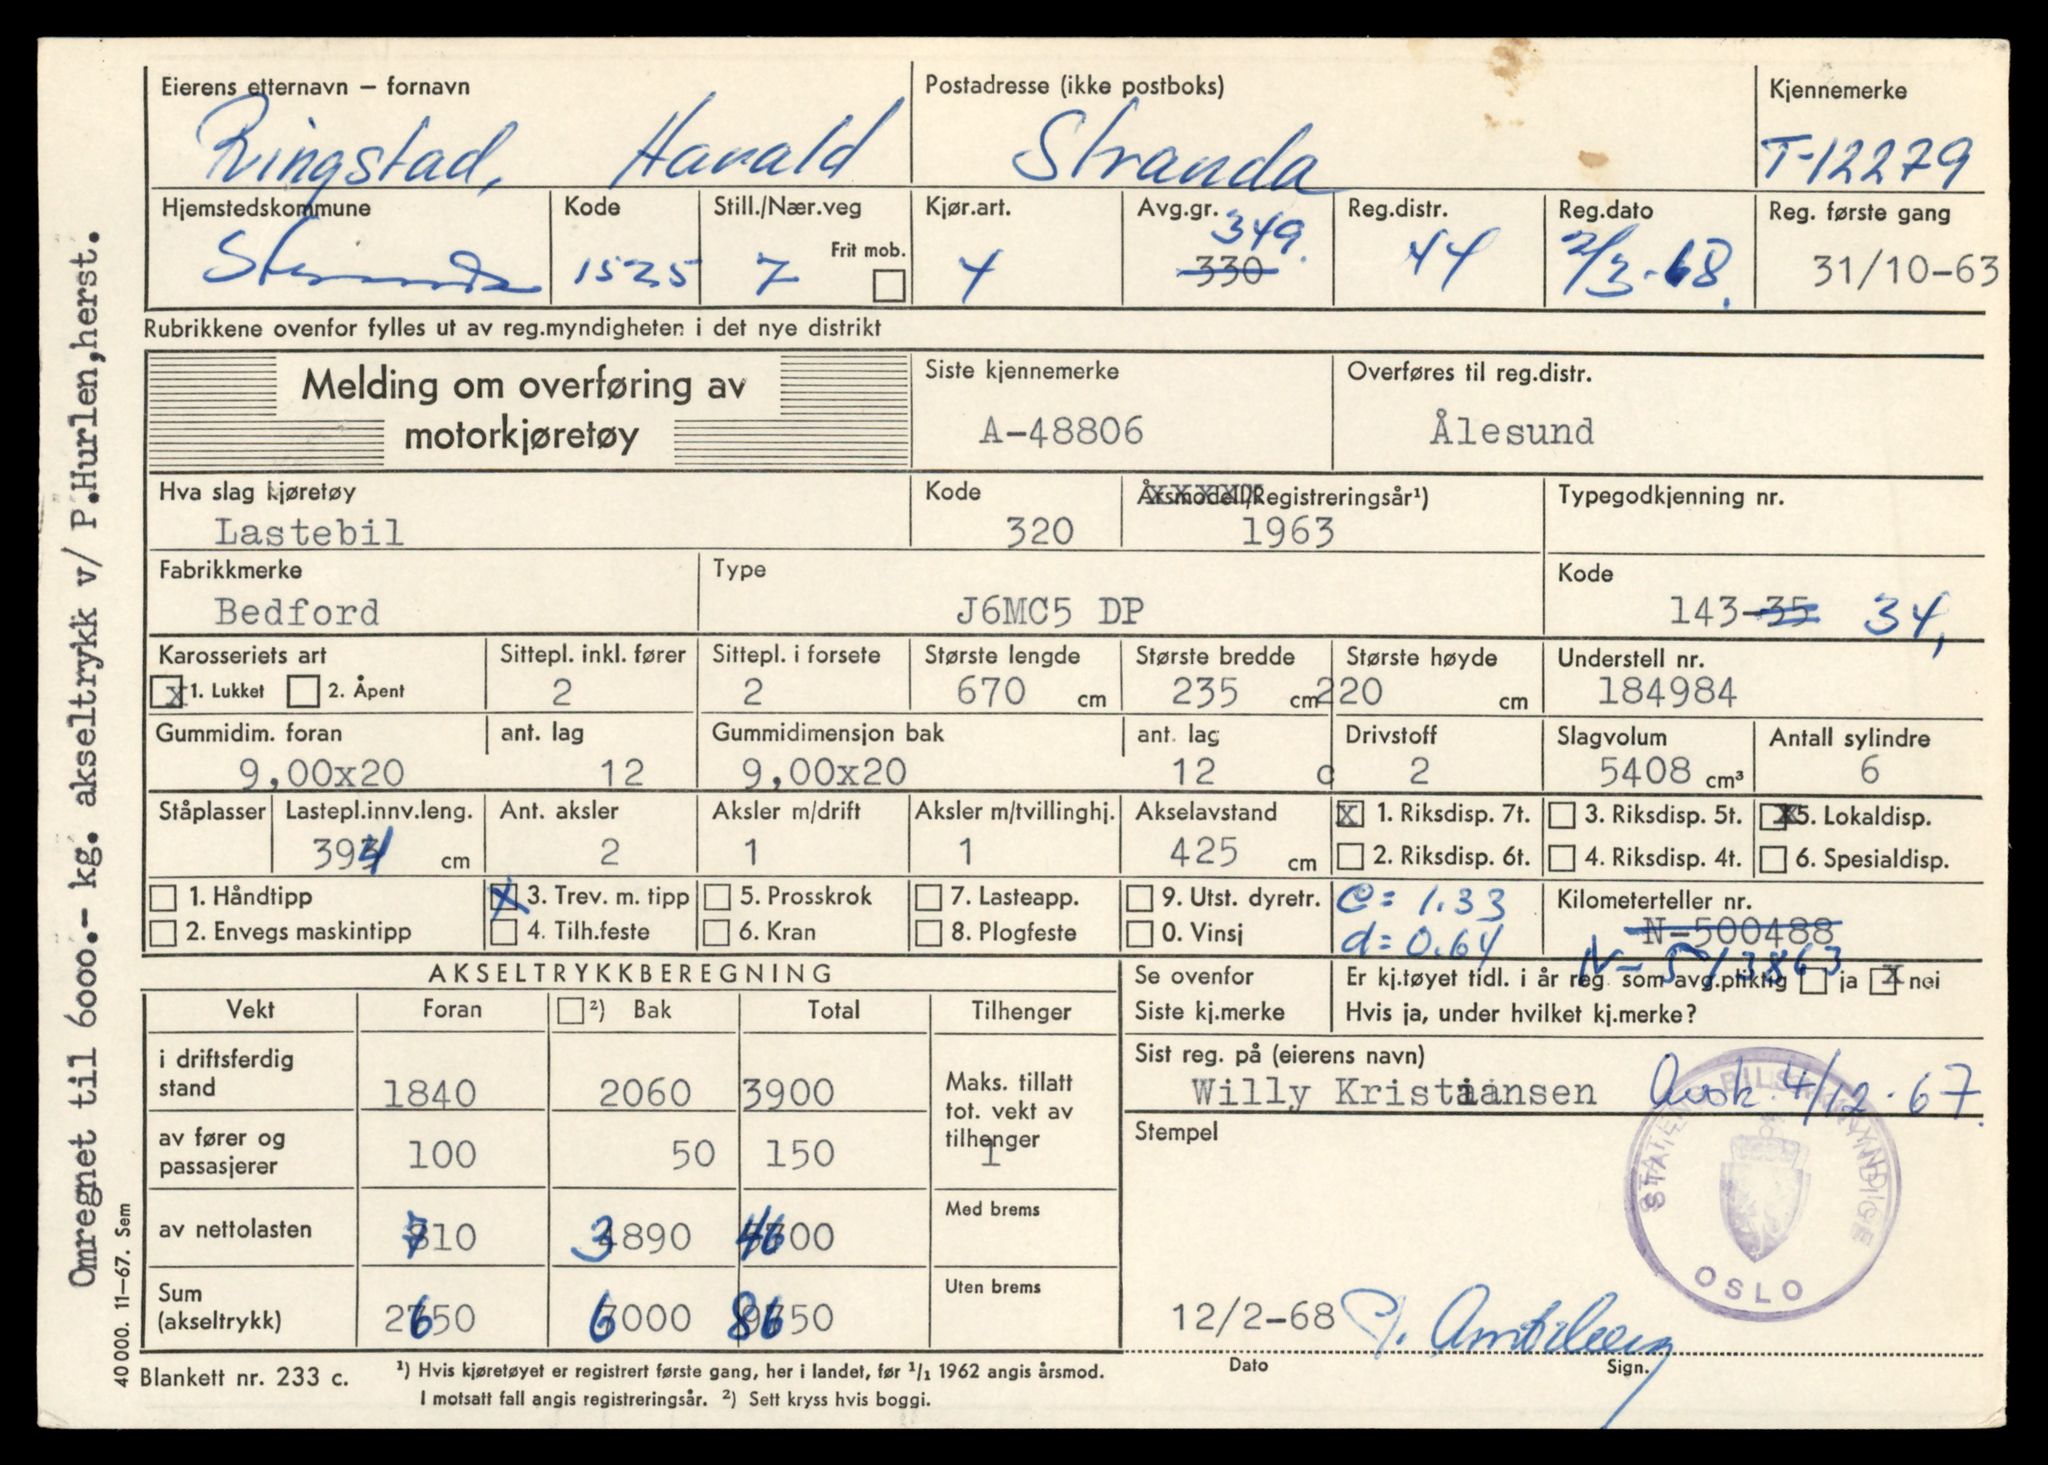 Eierens etternavn – fornavn Postadresse (ikke postboks) Kjennemerke
Ringstad, Harald Stranda T-12279
Hjemstedskommune Kode Still./Nær.veg Kjør.art. Avg.gr. Reg.distr. Reg.dato Reg. første gang
Frit mob.
Stranda 1525 7 4 330 349. 44 2/3-68. 31/10-63
Rubrikkene ovenfor fylles ut av reg.myndigheten i det nye distrikt
Melding om overføring av
motorkjøretøy
Siste kjennemerke Overføres til reg.distr.
A-48806 Ålesund
Hva slag kjøretøy Kode Årsmodell/Registreringsår¹) Typegodkjenning nr.
Lastebil 320 1963
Fabrikkmerke Type Kode
Bedford J6MC5 DP 143-35 34,
Karosseriets art Sittepl. inkl. fører Sittepl. i forsete Største lengde Største bredde Største høyde Understell nr.
x 1. Lukket 2. Åpent 2 2 670 cm 235 cm 220 cm 184984
Gummidim. foran ant. lag Gummidimensjon bak ant. lag Drivstoff Slagvolum Antall sylindre
9,00x20 12 9,00x20 12 c 2 5408 cm³ 6
Ståplasser Lastepl.innv.leng. Ant. aksler Aksler m/drift Aksler m/tvillinghj. Akselavstand
394 cm 2 1 1 425 cm
x 1. Riksdisp. 7t. 3. Riksdisp. 5t. x 5. Lokaldisp.
2. Riksdisp. 6t. 4. Riksdisp. 4t. 6. Spesialdisp.
1. Håndtipp x 3. Trev. m. tipp 5. Prosskrok 7. Lasteapp. 9. Utst. dyretr. C= 1.33 Kilometerteller nr.
2. Envegs maskintipp 4. Tilh.feste 6. Kran 8. Plogfeste 0. Vinsj d= 0.64 N-500488
N-513863
AKSELTRYKKBEREGNING
Se ovenfor Er kj.tøyet tidl. i år reg. som avg.pliktig ja x nei
Siste kj.merke Hvis ja, under hvilket kj.merke?
Vekt Foran ²) Bak Total Tilhenger
i driftsferdig
stand 1840 2060 3900
Maks. tillatt
tot. vekt av
tilhenger
1
av fører og
passasjerer 100 50 150
av nettolasten 710 3890 4600 Med brems
Sum
(akseltrykk) 2650 6000 8650 Uten brems
Sist reg. på (eierens navn)
Willy Kristiansen Avsk. 4/12-67.
Stempel
STATENS BILSAKKYNDIGE
OSLO
12/2-68
Dato Sign.
Blankett nr. 233 c.
¹) Hvis kjøretøyet er registrert første gang, her i landet, før ¹/₁ 1962 angis årsmod.
I motsatt fall angis registreringsår. ²) Sett kryss hvis boggi.
40 000. 11–67. Sem
Omregnet til 6000.- kg. akseltrykk v/ P.Hurlen,herst.